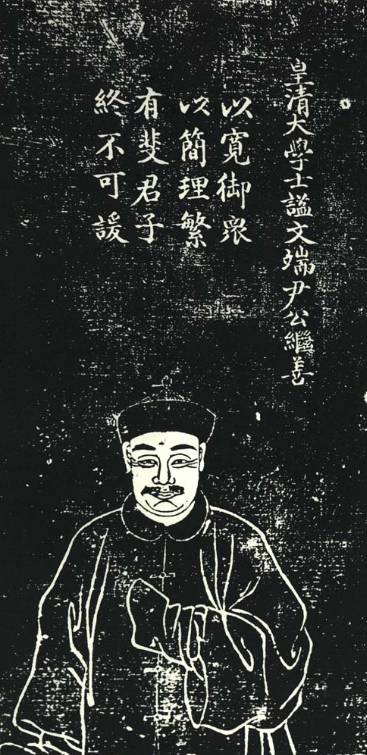 皇清大學士謚文端尹公繼善
以寬御衆
以簡理繁
有斐君子
終不可諼